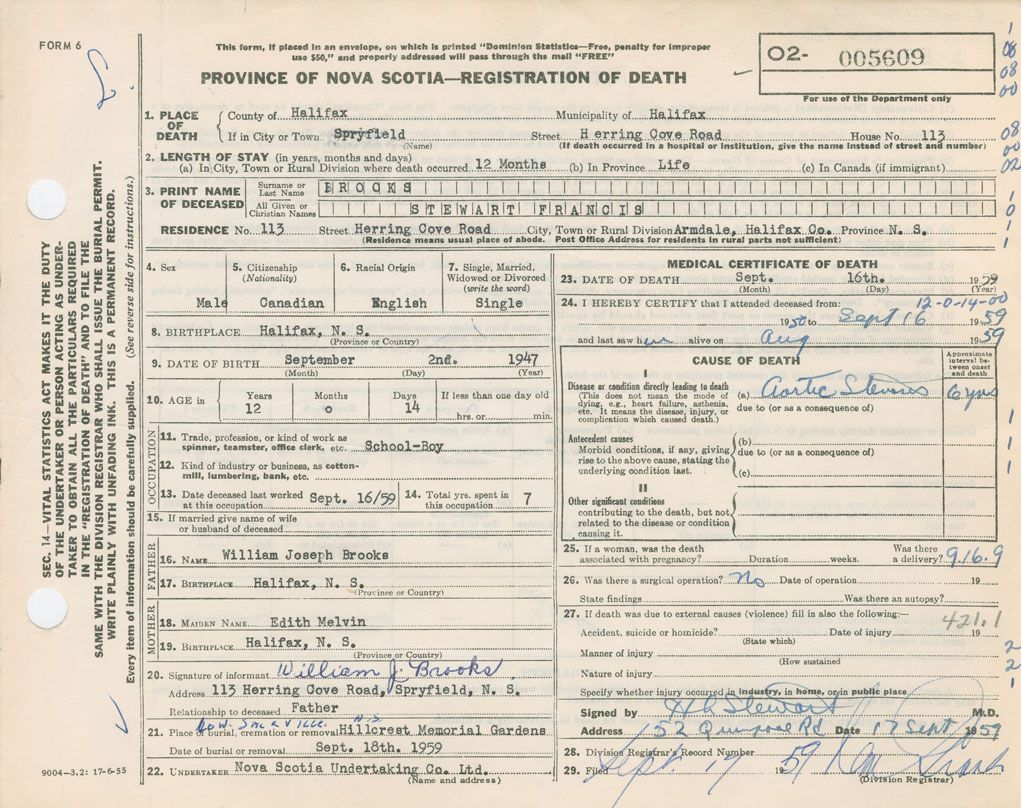 FORM 6
This form, if placed in an envelope, on which is printed "Dominion Statistics—Free, penalty for improper
use $50," and properly addressed will pass through the mail "FREE"
PROVINCE OF NOVA SCOTIA—REGISTRATION OF DEATH
02- 005609
For use of the Department only
1
08
08
00
08
00
02
1
0
1
1
1
1
2
2
1
SEC. 14—VITAL STATISTICS ACT MAKES IT THE DUTY
OF THE UNDERTAKER OR PERSON ACTING AS UNDER-
TAKER TO OBTAIN ALL THE PARTICULARS REQUIRED
IN THE "REGISTRATION OF DEATH" AND TO FILE THE
SAME WITH THE DIVISION REGISTRAR WHO SHALL ISSUE THE BURIAL PERMIT.
WRITE PLAINLY WITH UNFADING INK. THIS IS A PERMANENT RECORD.
Every item of information should be carefully supplied. (See reverse side for instructions.)
1. PLACE OF DEATH
County of Halifax Municipality of Halifax
If in City or Town Spryfield Street Herring Cove Road House No. 113
(Name) (If death occurred in a hospital or institution, give the name instead of street and number)
2. LENGTH OF STAY (in years, months and days)
(a) In City, Town or Rural Division where death occurred 12 Months (b) In Province Life (c) In Canada (if immigrant)
3. PRINT NAME OF DECEASED
Surname or Last Name BROOKS
All Given or Christian Names STEWART FRANCIS
RESIDENCE No. 113 Street Herring Cove Road City, Town or Rural Division Armdale, Halifax Co. Province N. S.
(Residence means usual place of abode. Post Office Address for residents in rural parts not sufficient)
4. Sex 5. Citizenship 6. Racial Origin 7. Single, Married,
(Nationality) Widowed or Divorced
(write the word)
Male Canadian English Single
8. BIRTHPLACE Halifax, N. S.
(Province or Country)
9. DATE OF BIRTH September 2nd. 1947
(Month) (Day) (Year)
10. AGE in Years Months Days If less than one day old
12 0 14 hrs. or min.
OCCUPATION
11. Trade, profession, or kind of work as
spinner, teamster, office clerk, etc. School-Boy
12. Kind of industry or business, as cotton-
mill, lumbering, bank, etc.
13. Date deceased last worked at this occupation Sept. 16/59 14. Total yrs. spent in this occupation 7
15. If married give name of wife
or husband of deceased
FATHER
16. NAME William Joseph Brooks
17. BIRTHPLACE Halifax, N. S.
(Province or Country)
MOTHER
18. MAIDEN NAME Edith Melvin
19. BIRTHPLACE Halifax, N. S.
(Province or Country)
20. Signature of informant William J. Brooks
Address 113 Herring Cove Road, Spryfield, N. S.
Relationship to deceased Father
LOW. SACKVILLE. N.S.
21. Place of burial, cremation or removal Hillcrest Memorial Gardens
Date of burial or removal Sept. 18th. 1959
22. UNDERTAKER Nova Scotia Undertaking Co. Ltd.
(Name and address)
9004-3.2: 17-6-55
MEDICAL CERTIFICATE OF DEATH
23. DATE OF DEATH Sept. 16th. 1959
(Month) (Day) (Year)
24. I HEREBY CERTIFY that I attended deceased from: 12-0-14-00
1950 to Sept 16 1959
and last saw him alive on Aug 1959
CAUSE OF DEATH
Approximate interval between onset and death
I
Disease or condition directly leading to death (a) Aortic Stenosis 6 yrs
(This does not mean the mode of
dying, e.g., heart failure, asthenia,
etc. It means the disease, injury, or
complication which caused death.)
due to (or as a consequence of)
Antecedent causes (b)
Morbid conditions, if any, giving
rise to the above cause, stating the
underlying condition last.
due to (or as a consequence of)
(c)
II
Other significant conditions
contributing to the death, but not
related to the disease or condition
causing it.
25. If a woman, was the death Was there
associated with pregnancy? Duration weeks. a delivery? 9.16.9
26. Was there a surgical operation? No Date of operation 19
State findings Was there an autopsy?
27. If death was due to external causes (violence) fill in also the following:—
421.1
Accident, suicide or homicide? Date of injury 19
(State which)
Manner of injury
(How sustained
Nature of injury
Specify whether injury occurred in industry, in home, or in public place
Signed by H B Stewart M.D.
Address 152 Quinpool Rd Date 17 Sept 1959
28. Division Registrar's Record Number
29. Filed Sept. 17 1959
(Division Registrar)